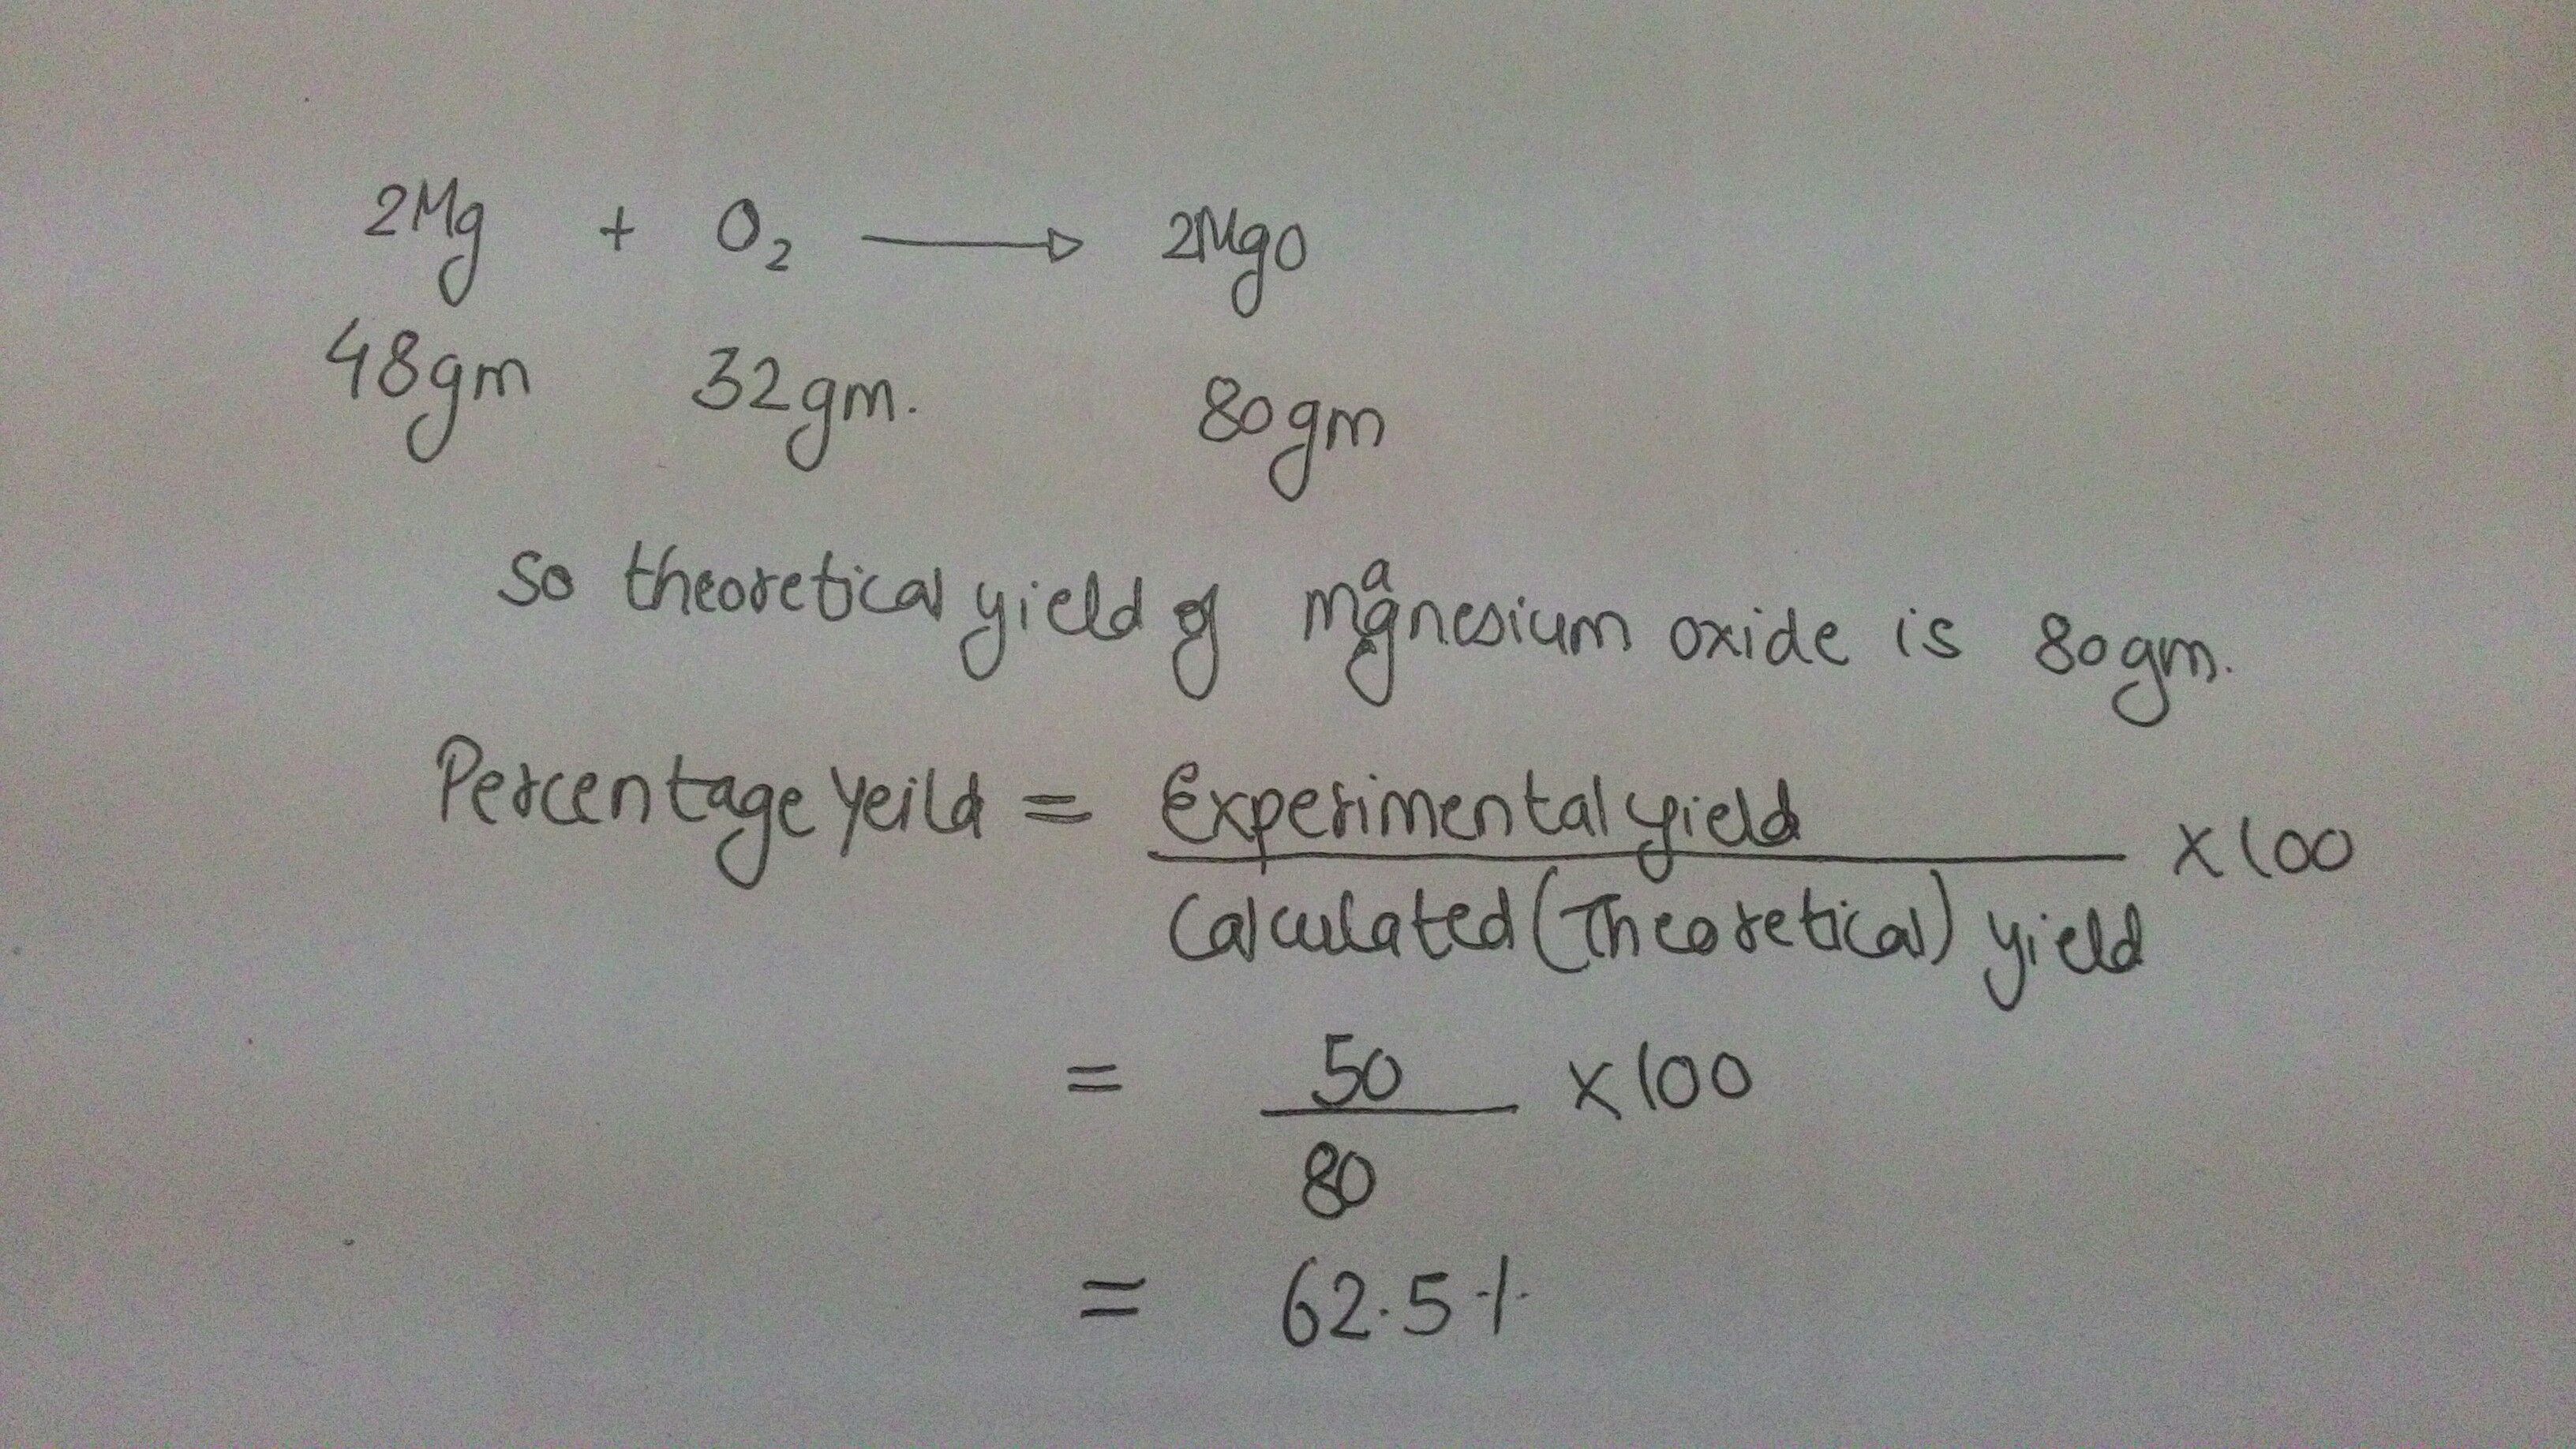 2Mg + O₂ → 2MgO
48gm 32gm. 80gm
So theoretical yield of magnesium oxide is 80gm.
Percentage Yeild = Experimental yield
x100
Calculated (Theoretical) yield
= 50 x100
80
= 62.5 %